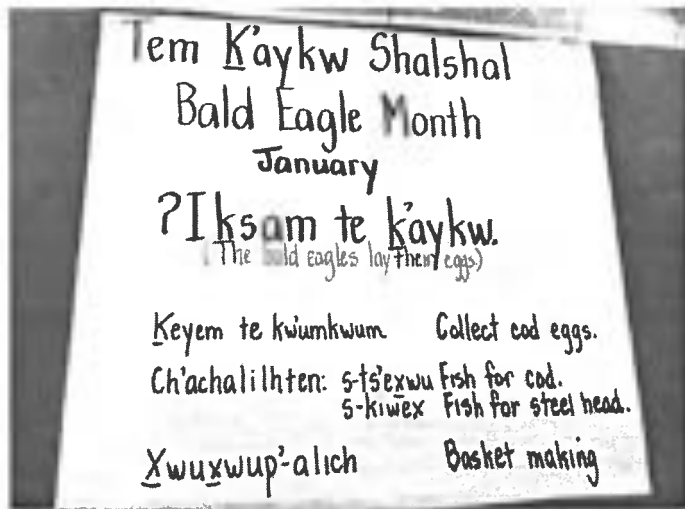 Tem K̲'aykw Shalshal
Bald Eagle Month
January
?I ksam te k̲'aykw.
(The bald eagles lay their eggs)
K̲eyem te kw'umkwum Collect cod eggs.
Ch'achalilhten: s-ts'ex̲wu Fish for cod.
s-kiw̓ex Fish for steel head.
X̲wux̲wup'-alich Basket making